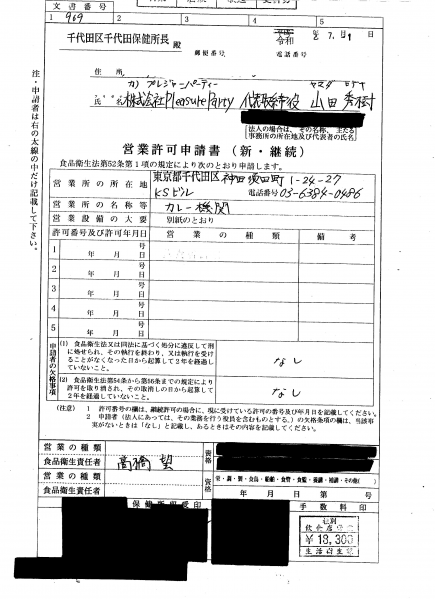 文書番号 1 2 3 4 5
969
千代田区千代田保健所長 殿
令和 2年 7月 9日
郵便番号
住所
カ) プレジャーパーティー ヤマダ ヒデキ
氏名 株式会社PleasureParty 代表取締役 山田 秀樹
法人の場合は、その名称、主たる
事務所の所在地及び代表者の氏名
営業許可申請書(新・継続)
食品衛生法第52条第1項の規定により次のとおり申請します。
営業所の所在地 東京都千代田区 神田須田町 1-24-27
KSビル 電話番号 03-6384-0486
営業所の名称等 カレー機関
営業設備の大要 別紙のとおり
許可番号及び許可年月日 営業の種類 備考
1 号
年 月 日
2 号
年 月 日
3 号
年 月 日
4 号
年 月 日
5 号
年 月 日
申請者の欠格事項
(1) 食品衛生法又は同法に基づく処分に違反して刑
に処せられ、その執行を終わり、又は執行を受け
ることがなくなった日から起算して2年を経過し
ていないこと。
なし
(2) 食品衛生法第54条から第56条までの規定により
許可を取り消され、その取消しの日から起算して
2年を経過していないこと。
なし
(注意) 1 許可番号の欄は、継続許可の場合に、現に受けている許可の番号及び年月日を記載してください。
2 申請者(法人にあっては、その業務を行う役員を含むものとする。)の欠格条項の欄は、当該事
実がないときは「なし」と記載し、あるときはその内容を記載してください。
注・申請者は右の太線の中だけ記載して下さい。
営業の種類 資格
食品衛生責任者 高橋 望
営業の種類 資格
食品衛生責任者 年 月 日 第 号
保健所収受印 手数料印
飲食店営業
¥18,300
生活衛生課